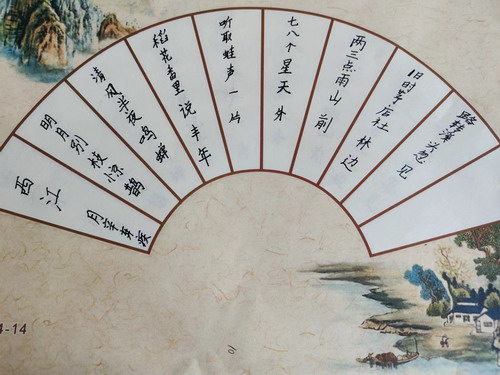 西江
月辛弃疾
明月别枝惊鹊
清风半夜鸣蝉
稻花香里说丰年
听取蛙声一片
七八个星天外
两三点雨山前
旧时茅店社林边
路转溪头忽见
4-14